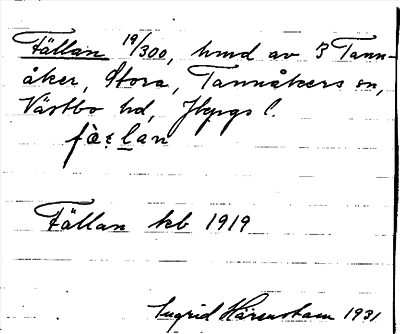 Fällan 19/300, hmd av 3 Tann-
åker, Stora, Tannåkers sn,
Västbo hd, Jkpgs l.
fὲ:lan
Fällan kb 1919
Ingrid Härenstam 1931